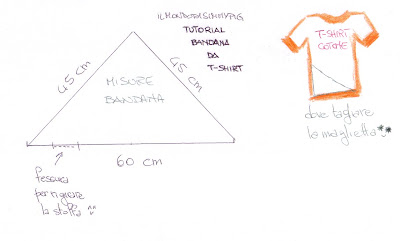 TUTORIAL
BANDANA
DA
T-SHIRT
45 cm
45 cm
MISURE
BANDANA
60 cm
fessura
per rigirare
la stoffa
T-SHIRT
COTONE
dove tagliare
la maglietta